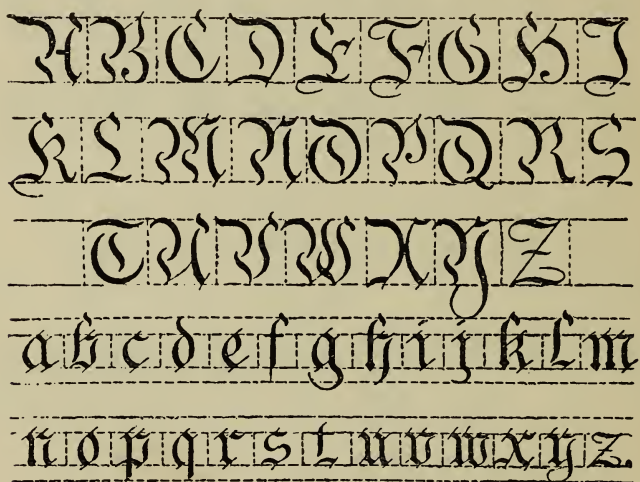 A B C D E F G H I
K L M N O P Q R S
T U V W X Y Z
a b c d e f g h i j k l m
n o p q r s t u v w x y z.